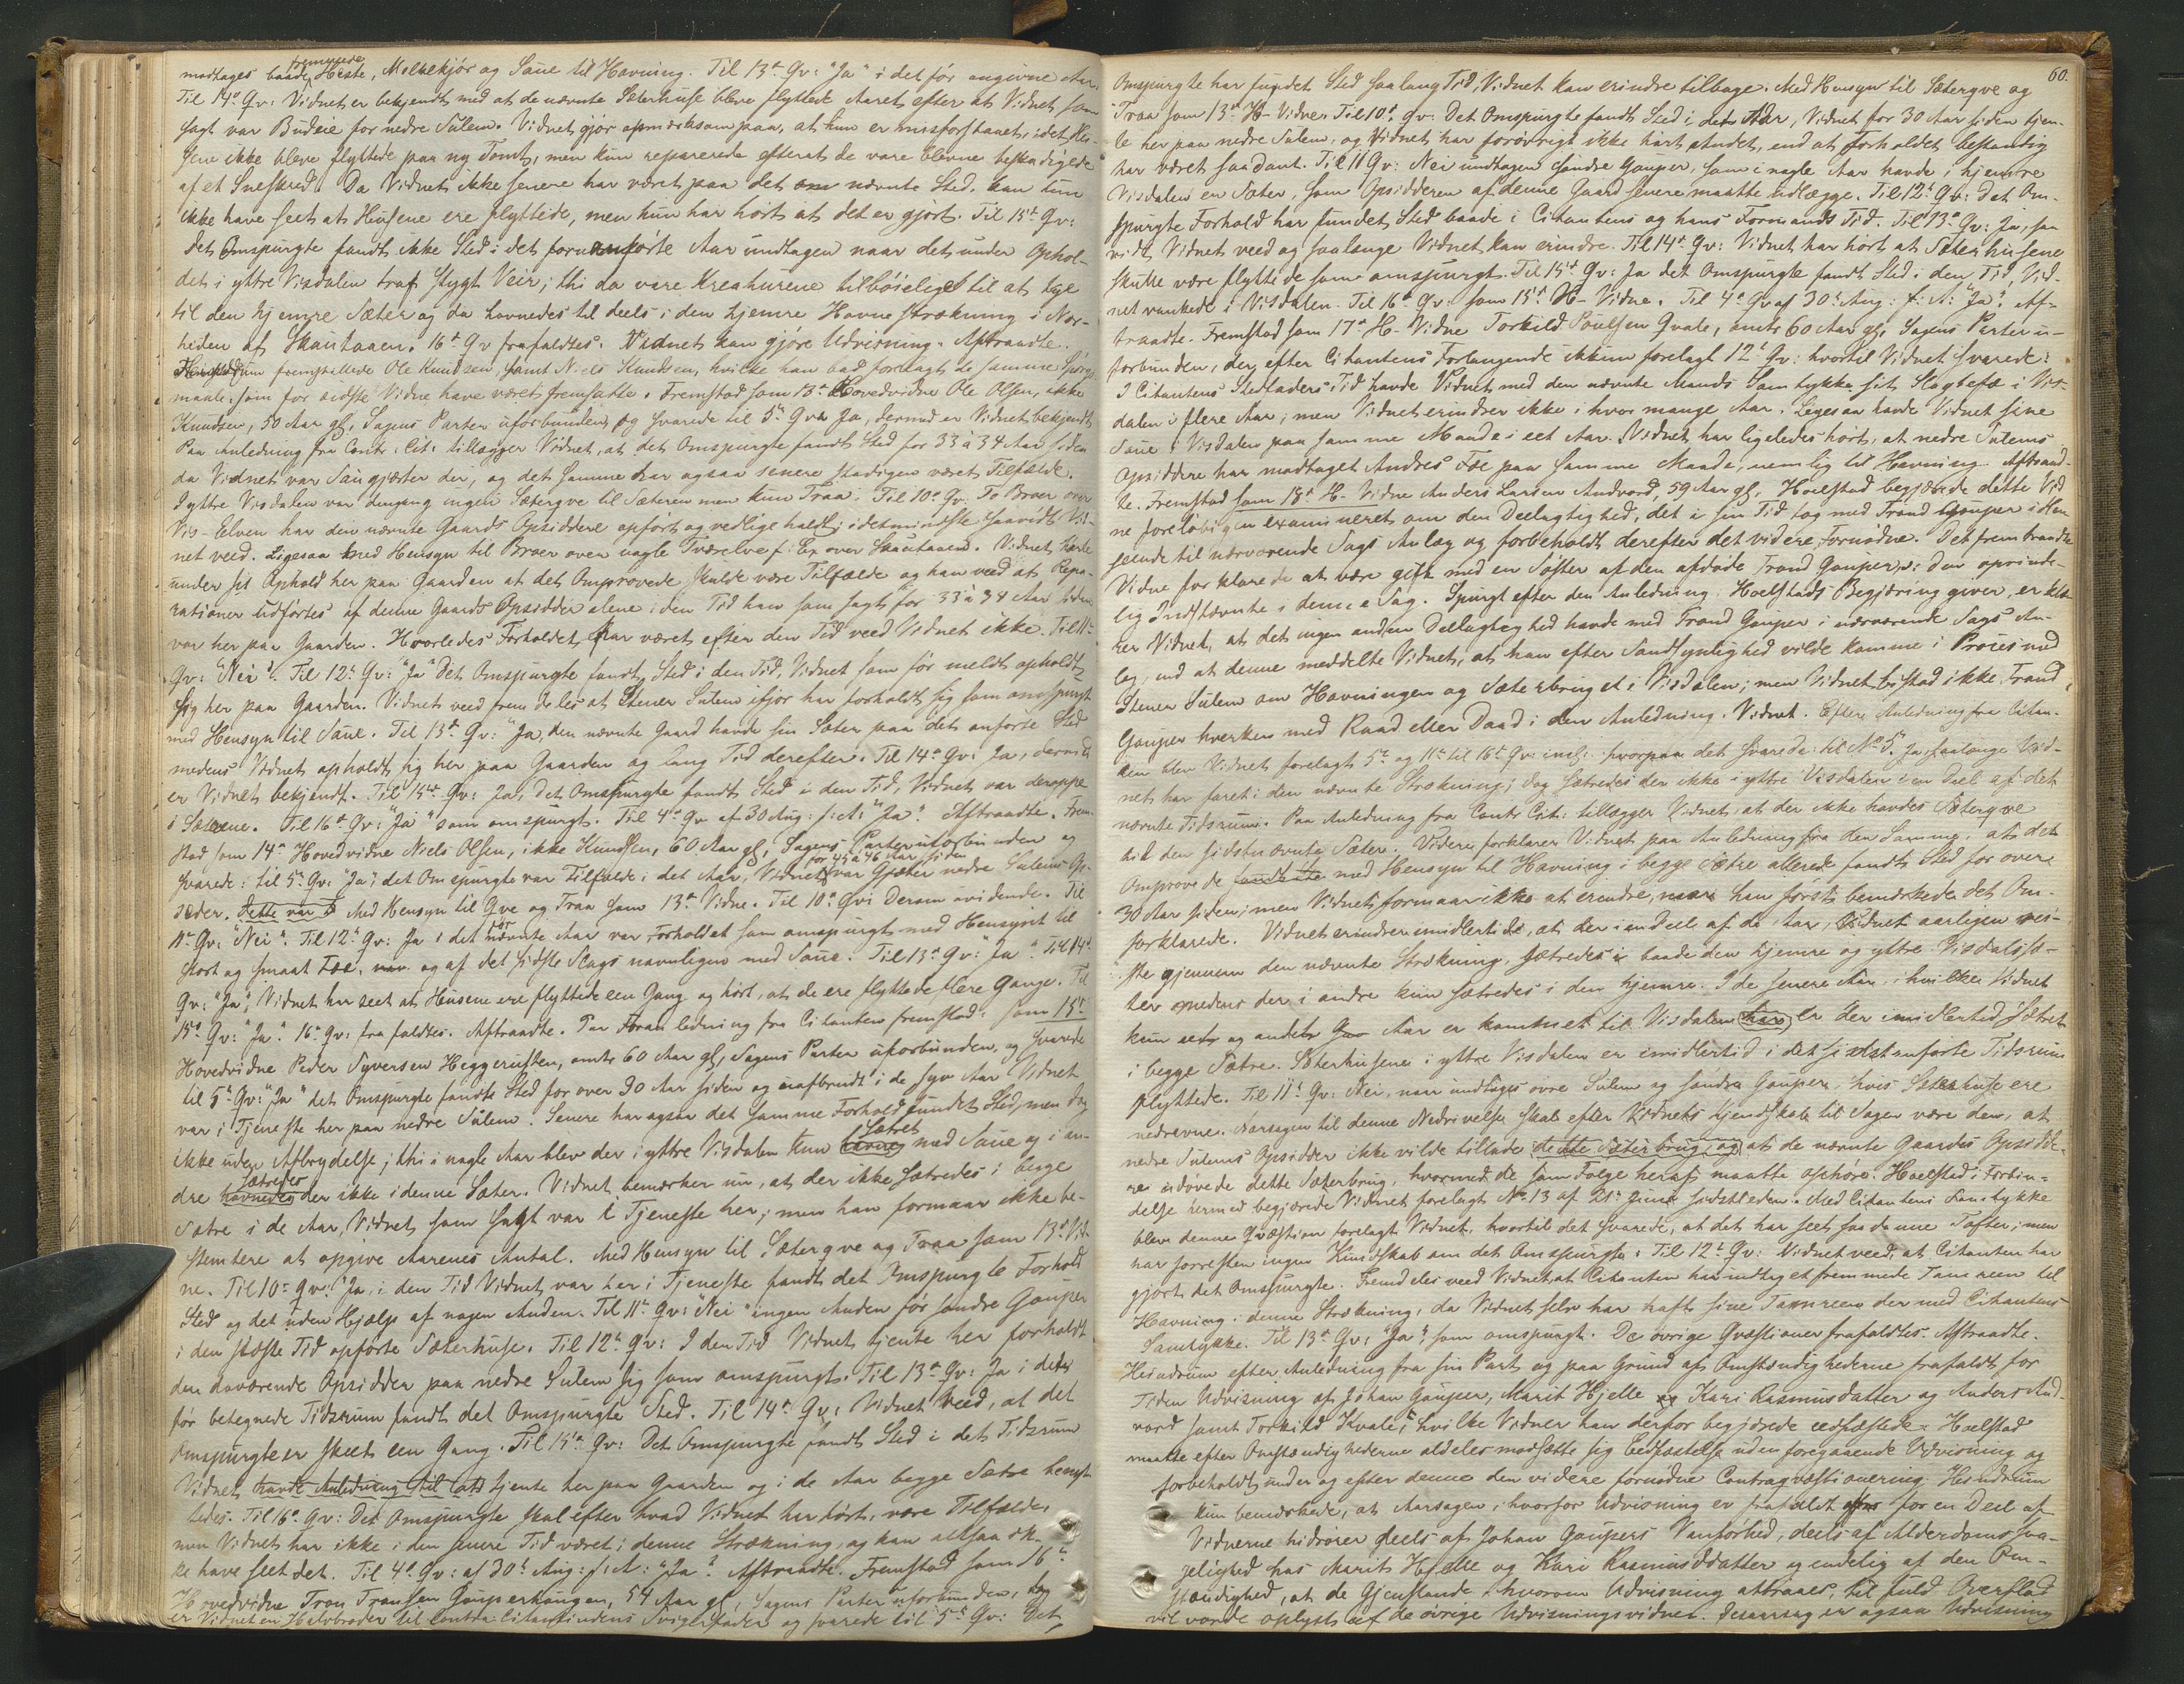 fremmede
modtages baade Heste, Melkekjör og Saue til Havning. Til 13de Qv: "Ja" i det för angivne Aar.
Til 14de Qv: Vidnet er bekjendt med at de nævnte Sæterhuse bleve flyttede Aaret efter at Vidnet som
sagt var Budeie for nedre Sulem. Vidnet gjör opmærksom paa, at hun er misforstaaet, idet Hu-
sene ikke bleve flyttede paa ny Tomt, men kun reparerede efterat de vare blevne beskadigede
af et Sneskred. Da Vidnet ikke senere har været paa det om nævnte Sted, kan hun
ikke have seet at Husene ere flyttede, men hun har hört at det er gjort. Til 15de Qv:
Det Omspurgte fandt ikke Sted i det foranförte Aar undtagen naar det under Ophol-
det i yttre Visdalen traf stygt Veir; thi da vare Kreaturene tilböielige til at tye
til den hjemre Sæter og da havnedes tildeels i den hjemre Havnestrækning i Nær-
heden af Skautaaen. 16de Qv frafaldtes. Vidnet kan gjöre Udvisning. Aftraadte.
Heindrum fremstillede Ole Knudsen, samt Niels Knudsen, hvilke han bad forelagt de samme Spörgs-
maale som for sidste Vidne have været fremsatte. Fremstod som 13de Hovedvidne Ole Olsen, ikke
Knudsen, 50 Aar gl, Sagens Parter uforbunden, og svarede til 5te Qv: Ja, dermed er Vidnet bekjendt.
Paa Anledning fra Contr. Cit. tillægger Vidnet, at det Omspurgte fandt Sted for 33 à 34 Aar siden
da Vidnet var Saugjæter der, og det Samme har ogsaa senere stadigen været Tilfælde.
I yttre Visdalen var dengang ingen Sætergve til Sæteren men kun Traa. Til 10de Qv: To Broer over
Vis-Elven har den nævnte Gaards Opsiddere opfört og vedligeholdt, idetmindste saavidt Vid-
net veed. Ligesaa med Hensyn til Broer over nogle Tværelve f: Ex over Skautaaen. Vidnet hörte
under sit Ophold her paa Gaarden at det Omprövede skulde være Tilfælde og han veed at Repa-
rationer udförtes af denne Gaards Opsidder alene i den Tid han som sagt for 33 à 34 Aar siden
var her paa Gaarden. Hvorledes Forholdet har været efter den Tid veed Vidnet ikke. Til 11te
Qv: "Nei". Til 12te Qv: "Ja" Det Omspurgte fandt Sted i den Tid, Vidnet som för meldt opholdt
sig her paa Gaarden. Vidnet veed fremdeles at Stener Sulem ifjor har forholdt sig som omspurgt
med Hensyn til Saue. Til 13de Qv: "Ja, den nævnte Gaard havde sin Sæter paa det anförte Sted
medens Vidnet opholdt sig her paa Gaarden og lang Tid derefter. Til 14de Qv: Ja, dermed
er Vidnet bekjendt. Til 15de Qv: Ja, det Omspurgte fandt Sted i den Tid, Vidnet var deroppe
i Sæterne. Til 16de Qv: "Ja" som omspurgt. Til 4de Qv af 30 Aug: f: A: "Ja". Aftraadte. Frem-
stod som 14de Hovedvidne Niels Olsen, ikke Knudsen, 60 Aar gl, Sagens Parter uforbunden og
for 45 à 46 Aar siden
svarede: til 5te Qv: "Ja", det Omspurgte var Tilfælde i det Aar, Vidnet var Gjæter nedre Sulems Op-
sidder. Dette var i Med Hensyn til Qve og Traa som 13de Vidne. Til 10de Qv: Derom uvidende. Til
11te Qv: "Nei". Til 12te Qv: Ja i det för nævnte Aar var Forholdet som omspurgt med Hensynet til
stort og smaat Fæ, nav og af det sidste Slags navnligen med Saue. Til 13de Qv: "Ja". Til 14de
Qv: "Ja", Vidnet har seet at Husene ere flyttede een Gang og hört, at de ere flyttede flere Gange. Til
15de Qv: "Ja". 16de Qv: frafaldtes. Aftraadte. Paa Foranledning fra Citanten fremstod som 15de
Hovedvidne Peder Syversen Heggerusten, omtr 60 Aar gl, Sagens Parter uforbunden, og svarede
til 5te Qv: "Ja" det Omspurgte fandt Sted for over 30 Aar siden og uafbrudt i de syv Aar Vidnet
var i Tjeneste her paa nedre Sulem. Senere har ogsaa det samme Forhold fundet Sted, men dog
Sætret
ikke uden Afbrydelse; thi i nogle Aar blev der i yttre Visdalen kun havnet med Saue og i an-
Sætredes
dre havnedes der ikke i denne Sæter. Vidnet bemærker nu, at der ikke sætredes i begge
Sætre i de Aar, Vidnet som sagt var i Tjeneste her; men han formaar ikke be-
stemtere at opgive Aarenes Antal. Med Hensyn til Sætergve og Traa som 13de Vid-
ne. Til 10de Qv: "Ja, i den Tid Vidnet var her i Tjeneste fandt det Omspurgte Forhold
Sted og det uden Hjælp af nogen Anden. Til 11te Qv: "Nei" ingen Anden för söndre Gauper
i den sidste Tid opförte Sæterhuse. Til 12te Qv: I den Tid Vidnet tjente her forholdt
den daværende Opsidder paa nedre Sulem sig som omspurgt. Til 13de Qv: Ja i det
för betegnede Tidsrum fandt det Omspurgte Sted. Til 14de Qv: Vidnet veed, at det
Omspurgte er skeet een Gang. Til 15de Qv: Det Omspurgte fandt Sted i det Tidsrum
Vidnet havde Anledning til at tjente her paa Gaarden og i de Aar begge Sætre benyt-
tedes. Til 16de Qv: Det Omspurgte skal efter hvad Vidnet har hört, være Tilfældet,
men Vidnet har ikke i den senere Tid været i denne Strækning, og kan altsaa ik-
ke have seet det. Til 4de Qv: af 30te Aug: f: A: "Ja". Aftraadte. Fremstod som 16de
Hovedvidne Tron Fransen Gauperhaugen, 54 Aar gl, Sagens Parter uforbunden, dog
er Vidnet en Halvbroder til Contra-Citantindens Svigerfader og svarede til 5te Qv: Det
60.
Omspurgte har fundet Sted saalang Tid, Vidnet kan erindre tilbage. Med Hensyn til Sætergve og
Traa som 13de H-Vidne. Til 10de Qv: Det Omspurgte fandt Sted i det Aar, Vidnet for 30 Aar siden tjen-
te her paa nedre Sulem, og Vidnet har forövrigt ikke hört Andet, end at Forholdet bestandig
har været saadant. Til 11 Qv: Nei undtagen söndre Gauper, som i nogle Aar havde i hjemre
Visdalen en Sæter, som Opsidderen af denne Gaard senere maatte nedlægge. Til 12te Qv: Det Om-
spurgte Forhold har fundet Sted baade i Citantens og hans Formands Tid. Til 13de Qv: Ja, saa
vidt Vidnet veed og saalænge Vidnet kan erindre. Til 14de Qv: Vidnet har hört at Sæterhusene
skulle være flyttede som omspurgt. Til 15de Qv: Ja det Omspurgte fandt Sted i den Tid, Vid-
net vankede i Visdalen. Til 16de Qv: som 15de H-Vidne. Til 4de Qv af 30te Aug: f: A: "Ja". Af-
traadte. Fremstod som 17de H-Vidne Torkild Poulsen Qvale, omtr 60 Aar gl, Sagens Parter u-
forbunden, der efter Citantens Forlangende ikkun forelagt 12te Qv: hvortil Vidnet svarede:
I Citantens Stedfaders Tid havde Vidnet med den nævnte Mands Samtykke sit Slagtefæ i Vis-
dalen i flere Aar; men Vidnet erindrer ikke i hvor mange Aar. Ligesaa havde Vidnet sine
Saue i Visdalen paa samme Maade i eet Aar. Vidnet har ligeledes hört, at nedre Sulems
Opsiddere har modtaget Andres Fæ paa samme Maade, nemlig til Havning. Aftraad-
te. Fremstod som 18de H-Vidne Anders Larsen Andvord, 59 Aar gl. Hoelstad begjærede dette Vid-
ne foreløbigen examineret om den Deelagtighed, det i sin Tid tog med Trond Gauper i Hen-
seende til nærværende Sags Anlæg og forbeholdt derefter det videre Fornødne. Det fremtraadte
Vidne forklarede at være gift med en Söster af den afdöde Trond Gauper: den oprinde-
lig Indstævnte i denne Sag. Spurgt efter den Anledning Hoelstads Begjæring giver, erklæ-
rer Vidnet, at det ingen anden Deelagtighed havde med Trond Gauper i nærværende Sags An-
læg, end at denne meddelte Vidnet, at han efter Sandsynlighed vilde komme i Proces med
Stener Sulem om Havningen og Sæterbruget i Visdalen; men Vidnet bistod ikke Trond
Gauper hverken med Raad eller Daad i den Anledning. Vidnet. Efter Anledning fra Citan-
ten blev Vidnet forelagt 5te og 11te til 16de Qv: incl: hvorpaa det svarede: til No 5. Ja, saalænge Vid-
net har faret i den nævnte Strækning; dog sætredes der ikke i yttre Visdalen i en Deel af det
nævnte Tidsrum. Paa Anledning fra Contr Cit: tillægger Vidnet, at der ikke havdes Sætergve
til den sidstnævnte Sæter. Videre forklarer Vidnet paa Anledning fra den Samme, at det
Omprövede fandt ste med Hensyn til Havning i begge Sætre allerede fandt Sted for over
30 Aar siden; men Vidnet formaar ikke at erindre, naar han först bemærkede det Om-
forklarede. Vidnet erindrer imidlertid, at der i endeel af de Aar, Vidnet aarligen rei-
ste gjennem den nævnte Strækning, sætredes i baade den hjemre og yttre Visdalssæ-
ter medens der i andre kun sætredes i den hjemre. I de senere Aar, i hvilke Vidnet
kun eet og andet Aar er kommet til Visdalen har er der imidlertid sætret
i begge Sætre. Sæterhusene i yttre Visdalen er imidlertid i det sidstanförte Tidsrum
flyttede. Til 11te Qv: Nei, naar undtages övre Sulem og söndre Gauper, hvis Sæterhuse ere
nedrevne. Aarsagen til denne Nedrivelse skal efter Vidnets Kjendskab til Sagen være den, at
nedre Sulems Opsidder ikke vilde tillade dette Sæterbrug og at de nævnte Gaardes Opsidde-
re udövede dette Sæterbrug, hvormed de som Fölge heraf maatte ophöre. Hoelstad i Forbin-
delse hermed begjærede Vidnet forelagt No 13 af 21de Juni sidstleden. Med Citantens Samtykke
blev denne Qvæstion forelagt Vidnet, hvortil det svarede, at det har seet saadanne Tofter; men
har forresten ingen Kundskab om det Omspurgte. Til 12te Qv: Vidnet veed, at Citanten har
gjort det Omspurgte. Fremdeles veed Vidnet at Citanten har modtaget fremmede Tamreen til
Havning i denne Strækning, da Vidnet selv har haft sine Tamreen der med Citantens
Samtykke. Til 13de Qv: "Ja", som omspurgt. De övrige Qvæstioner frafaldtes. Aftraadte.
Heindrum efter Anledning fra sin Part og paa Grund af Omstændighederne frafaldt for
Tiden Udvisning af Johan Gauper, Marit Hjelle og Kari Rasmusdatter og Anders And-
vord samt Torkild Kvale, hvilke Vidner han derfor begjærede eedfæstede. Hoelstad
maatte efter Omstændighederne aldeles modsætte sig Eedfæstelse uden foregaaende Udvisning og
forbeholdt under og efter denne den videre fornødne Contraqvæstionering. Heindrum
kun bemærkede, at Aarsagen, hvorfor Udvisning er frafaldt for en Deel af
Vidnerne hidrører deels af Johan Gaupers Vanförhed, deels af Alderdomssva-
gelighed hos Marit Hjelle og Kari Rasmusdatter og endelig af den Om-
stændighed, at de Gjenstande, hvorom Udvisning attraaes, til fuld Overflod
vil vorde oplyst af de övrige Udvisningsvidner. Desaarsag er ogsaa Udvisning